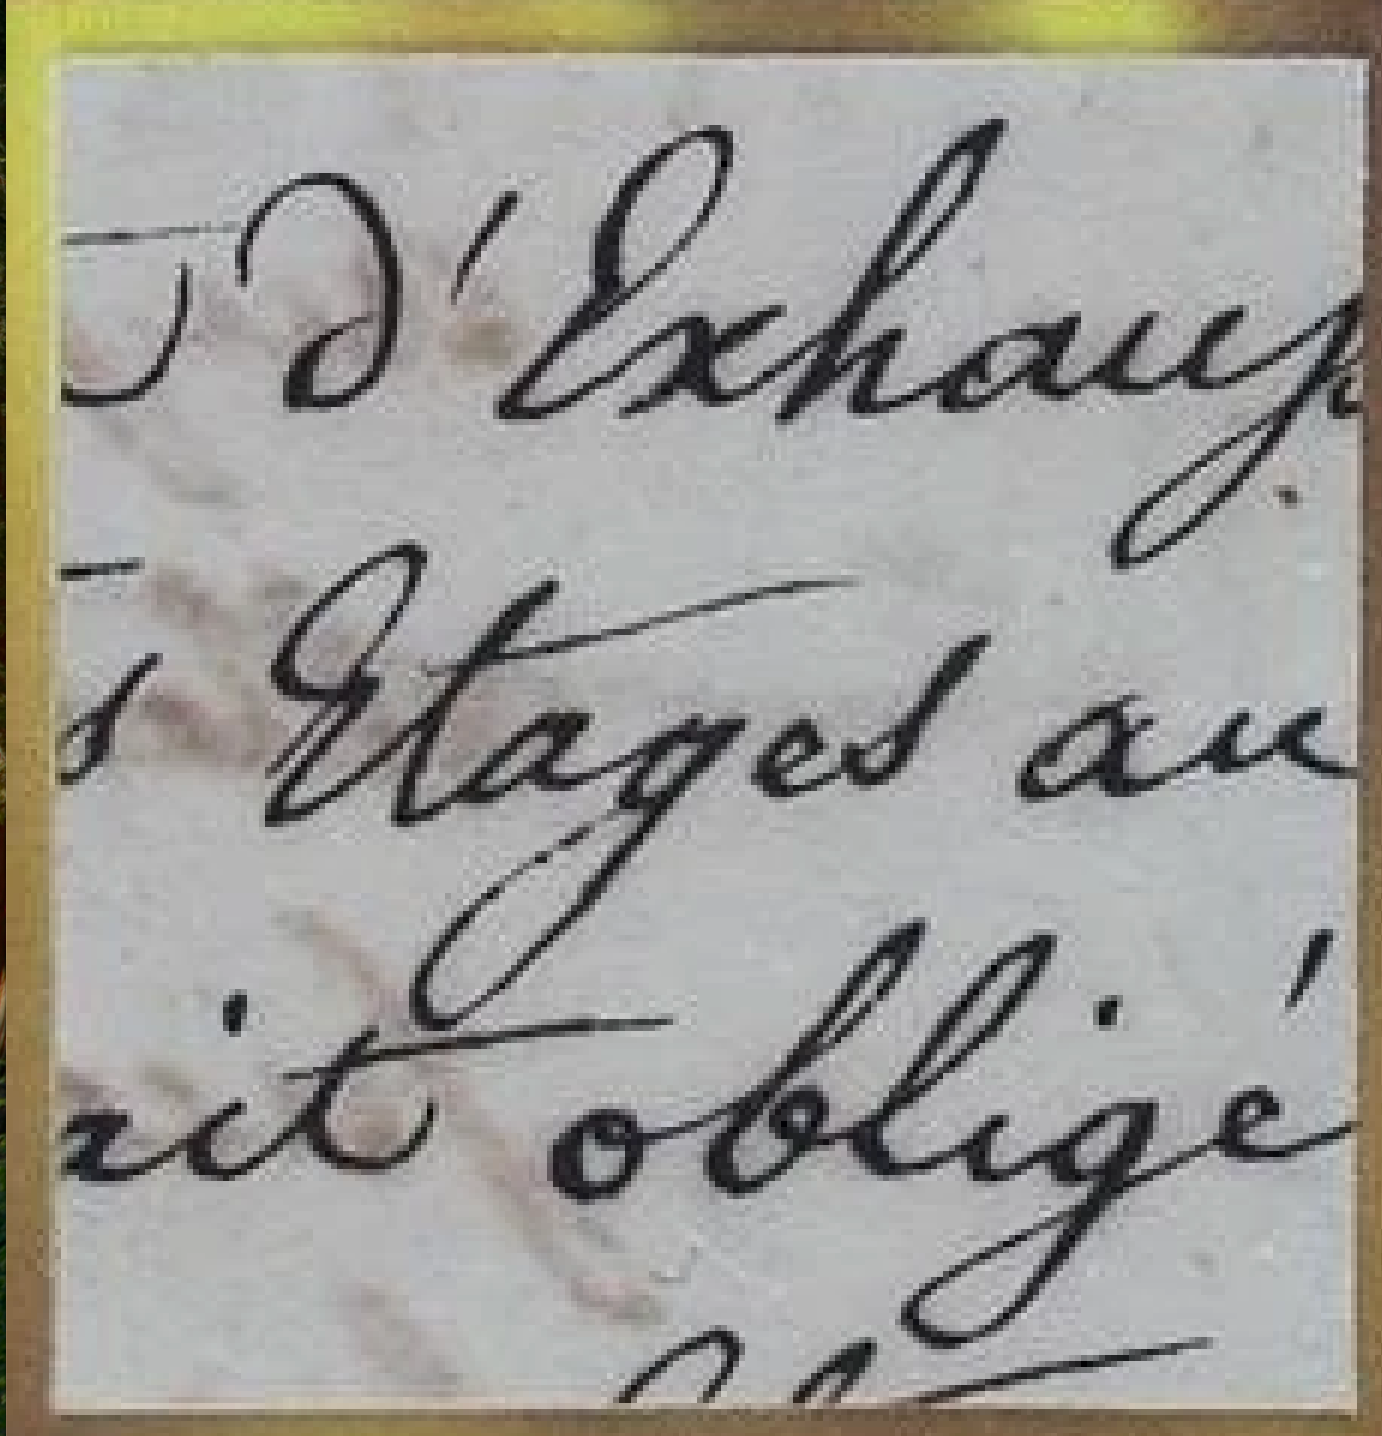 d'Exhaup
Etages au
it obligé